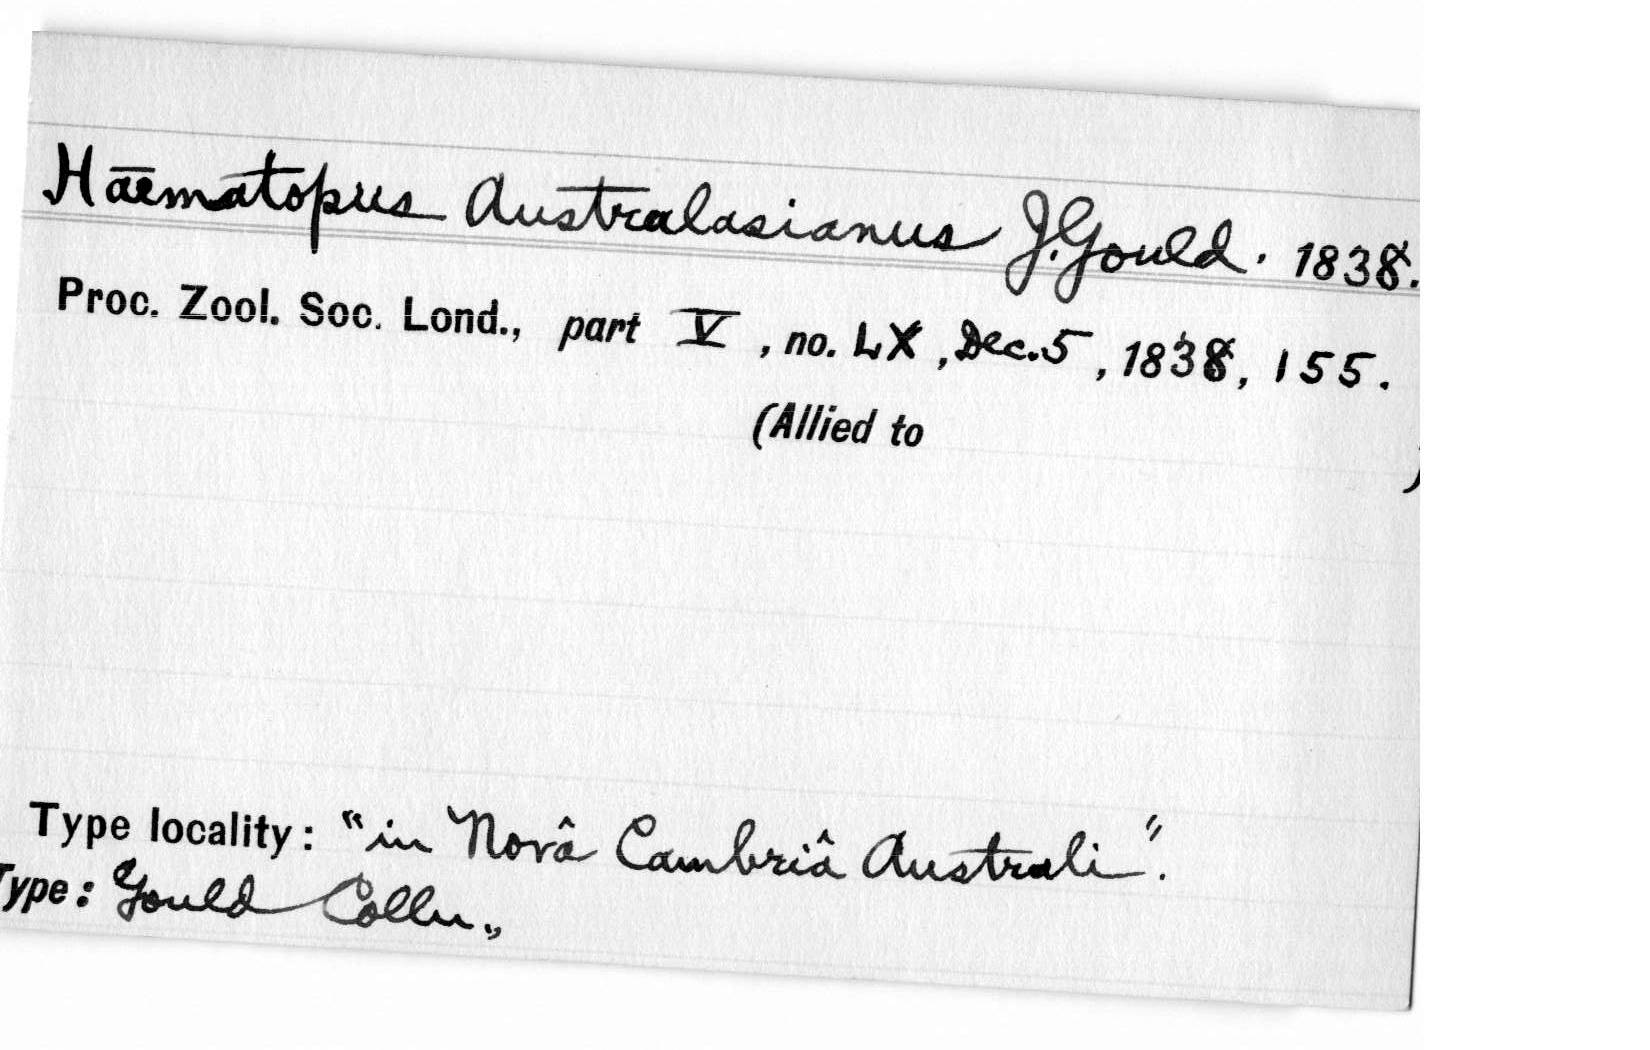 Haematopus Australasianus J. Gould. 1838.
Proc. Zool. Soc. Lond., part V, no. LX, Dec. 5, 1838, 155.
(Allied to )
Type locality: "in Novâ Cambriâ Australi".
Type: Gould Colln.,